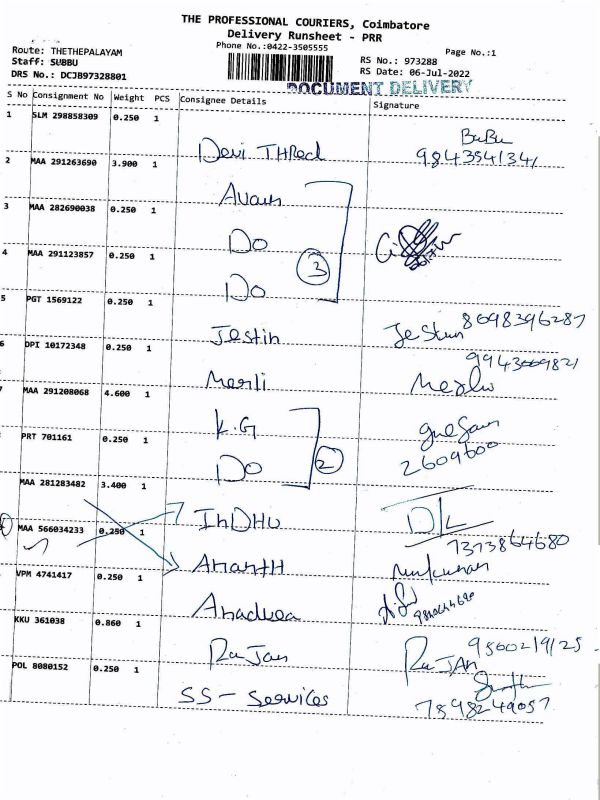 THE PROFESSIONAL COURIERS, Coimbatore
Delivery Runsheet - PRR
Phone No.:0422-3505555
Page No.:1
Route: THETHEPALAYAM
Staff: SUBBU
DRS No.: DCJB97328801
RS No.: 973288
RS Date: 06-Jul-2022
DOCUMENT DELIVERY
S No Consignment No Weight PCS Consignee Details Signature
1 SLM 298858309 0.250 1
Devi THRed BuBu
9843541341
2 MAA 291263690 3.900 1
3 MAA 282690038 0.250 1
Do
4 MAA 291123857 0.250 1
3
Do
5 PGT 1569122 0.250 1
Jestin Jestin 8098396287
6 DPI 10172348 0.250 1
Merli
MAA 291208068 4.600 1
K.G
PRT 701161 0.250 1
Do 2 2609600
MAA 281283482 3.400 1
InDHU D/L
MAA 566034233 0.250 1
7373864680
AnantH
VPM 4741417 0.250 1
KKU 361038 0.860 1
RaJan RaJAN 9500219125
POL 8080152 0.250 1
SS - Services 7898249057